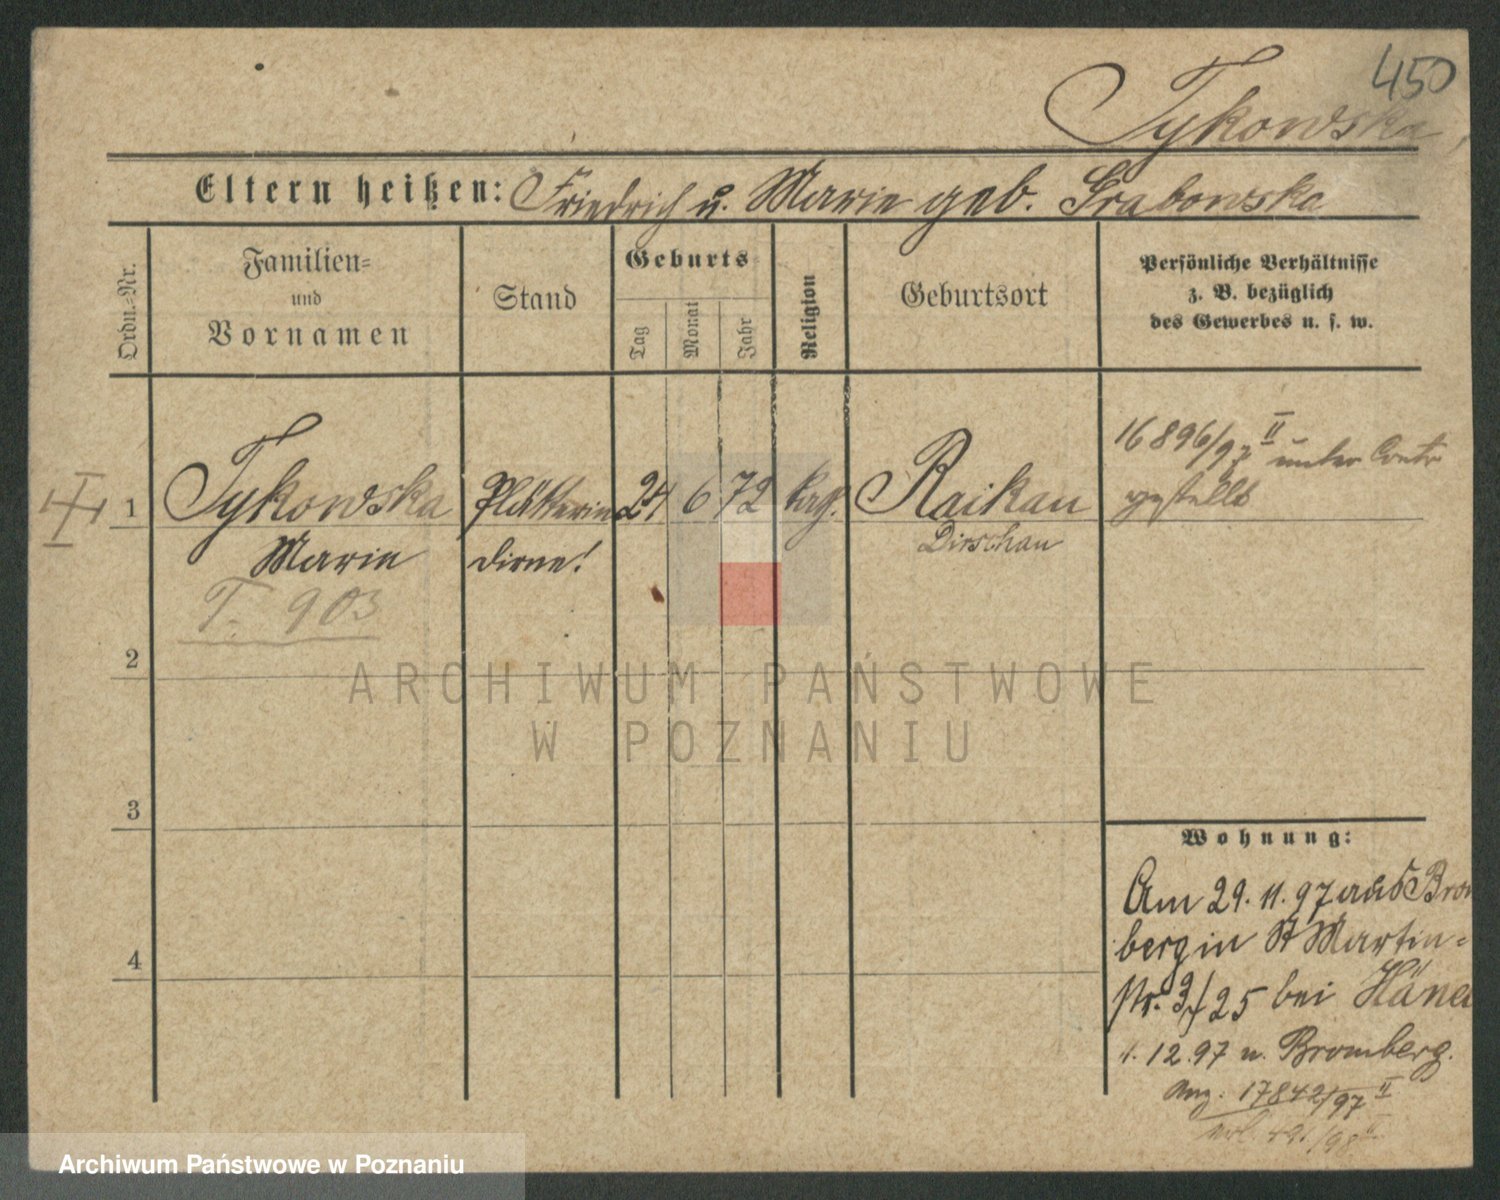 450
Tykowska
Eltern heißen: Friedrich u. Marie geb. Grabowska
Ordn.=Nr.
Familien=
und
Vornamen
Stand
Geburts
Tag
Monat
Jahr
Religion
Geburtsort
Persönliche Verhältnisse
z. B. bezüglich
des Gewerbes u. s. w.
16896/97 II unter Contr
gestellt
1 Tykowska Plätterin 24 6 72 Raikau
Marie dirne! Dirschau
T. 903
2
3
4
Wohnung:
Am 29.11.97 aus Brom
berg in St Martin=
str. 25 bei
1.12.97 n. Bromberg.
Anz. 17842/97 II
ARCHIWUM PAŃSTWOWE
W POZNANIU
Archiwum Państwowe w Poznaniu